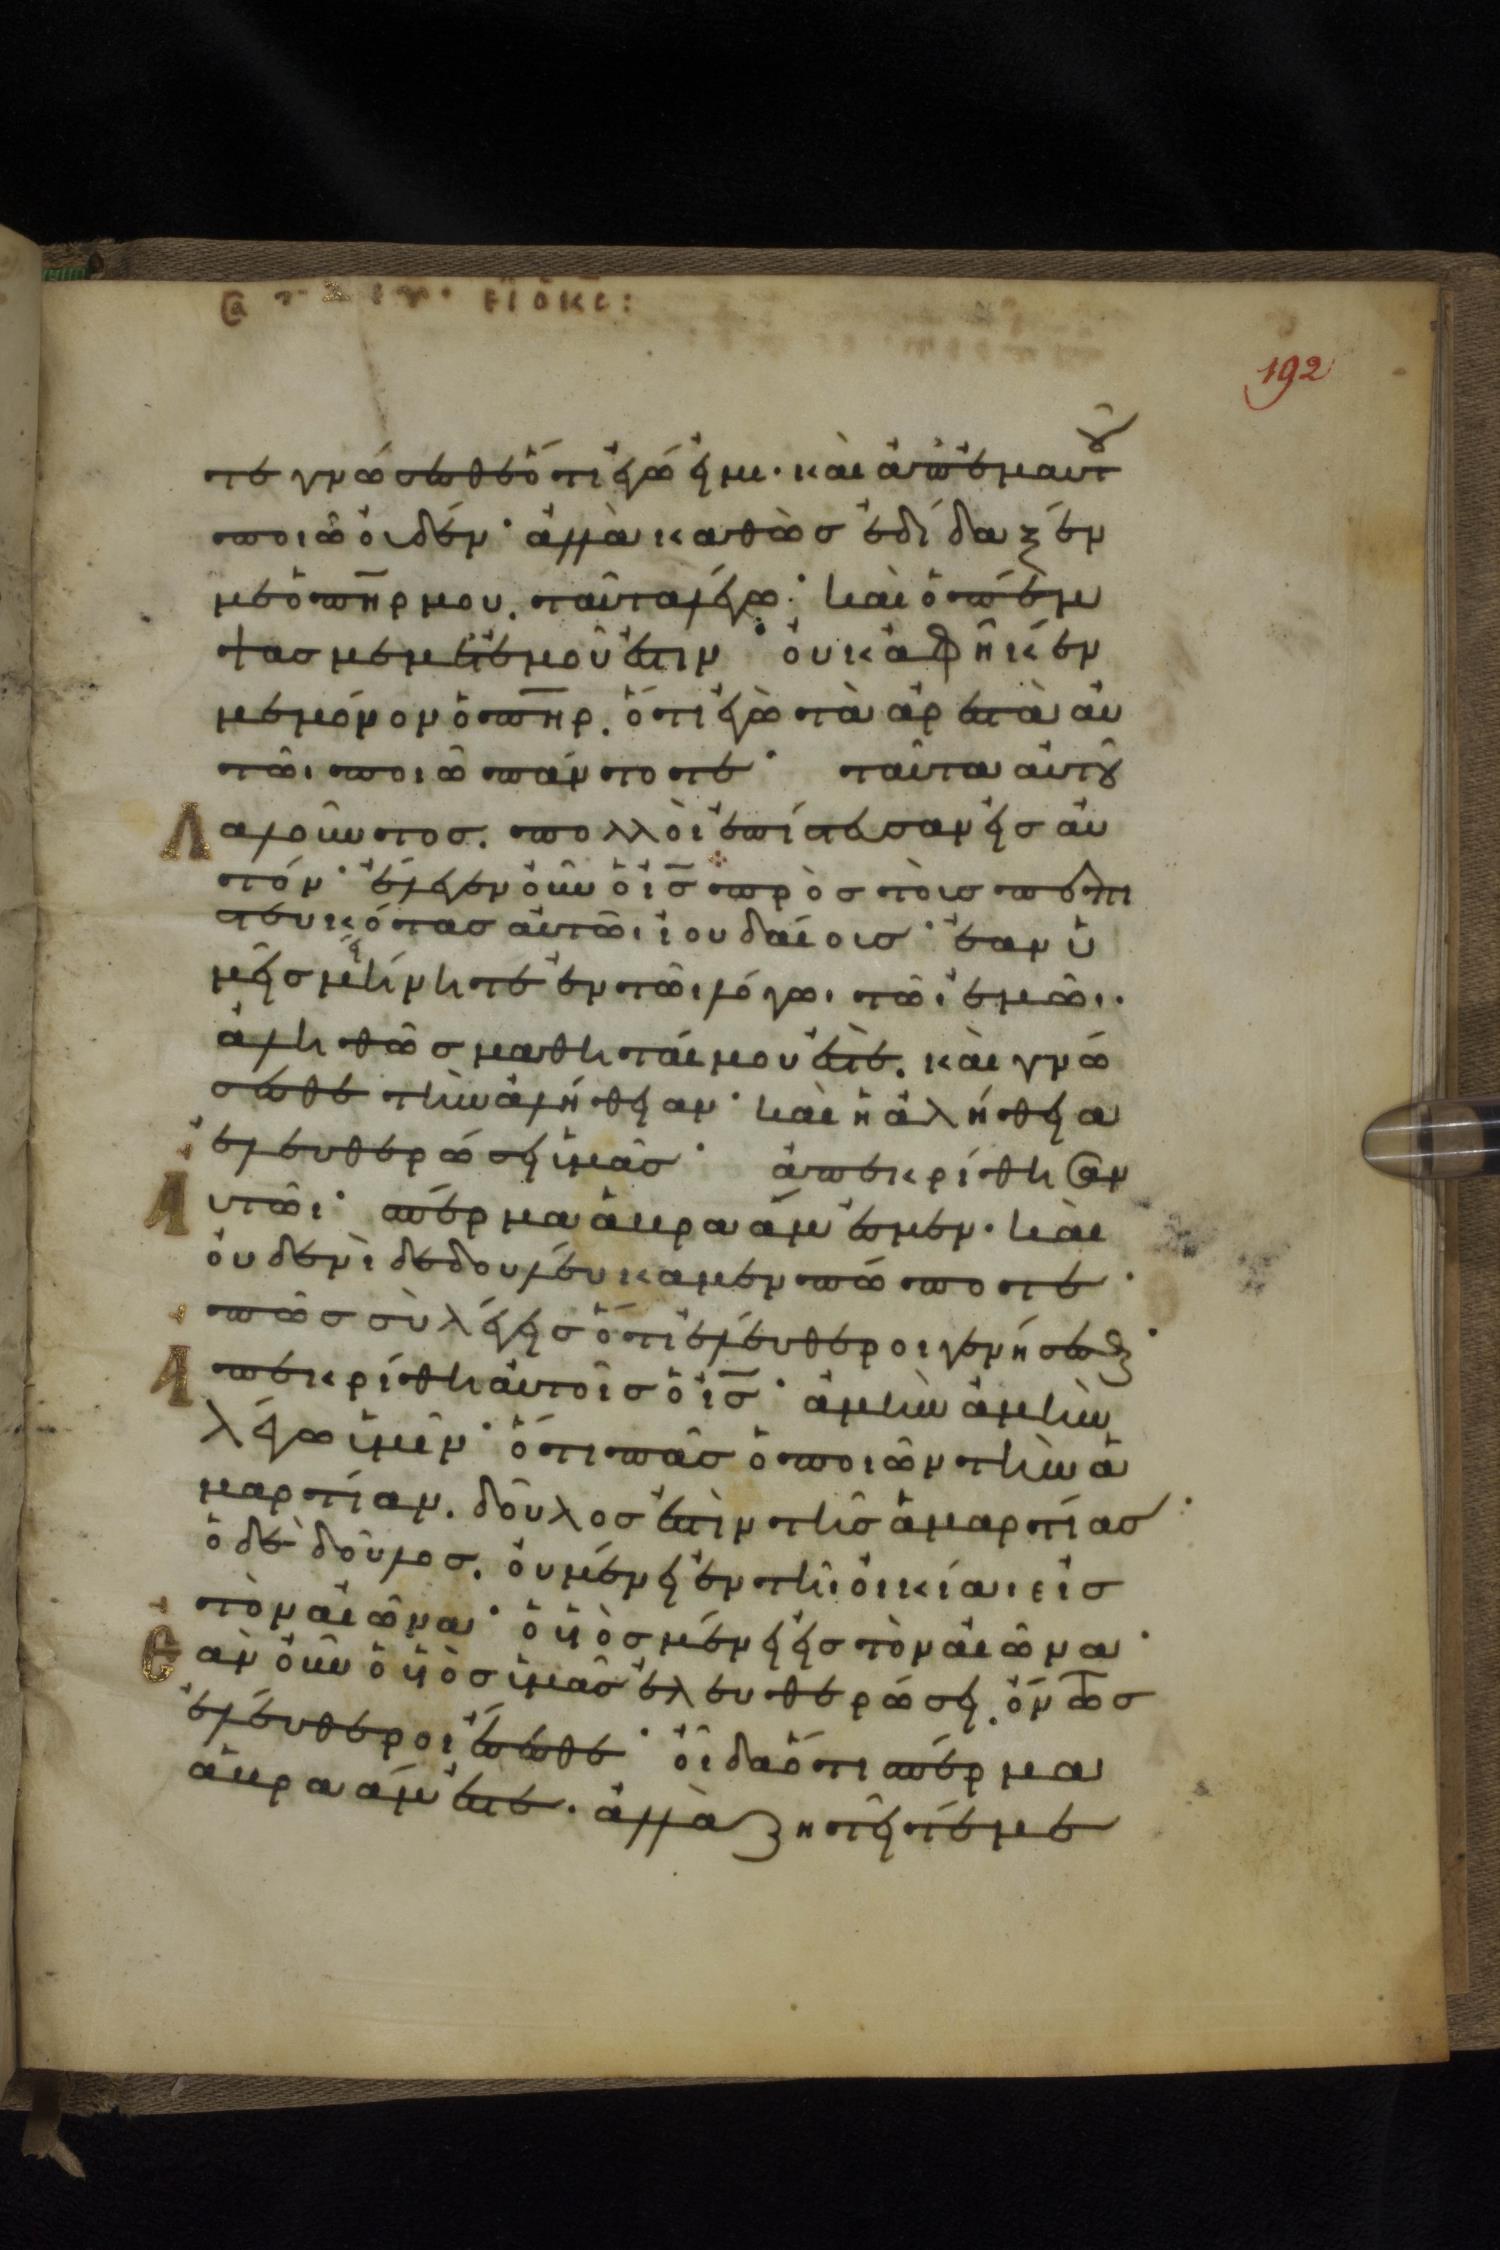 εἶπ ὁ κς:
192
τε γνώσεσθε ὅτι ἐγώ εἰμι· καὶ ἀπ' ἐμαυτοῦ
ποιῶ οὐδέν· ἀλλὰ καθὼς ἐδίδαξέν
με ὁ πηρ μου. ταῦτα λέγω· καὶ ὁ πέμ
ψας με μετ' ἐμοῦ ἐστιν· οὐκ ἀφῆκέν
με μόνον ὁ πηρ. ὅτι ἐγὼ τὰ ἀρεστὰ αὐ
τῶι ποιῶ πάντοτε· ταῦτα αὐτοῦ
Λαλοῦντος. πολλοὶ ἐπίστευσαν εἰς αὐ
τόν· ἔλεγεν οὖν ὁ ις πρὸς τοὺς πεπι
στευκότας αὐτῶι ἰουδαίους· ἐὰν ὑ
μεῖς μείνητε ἐν τῶι λόγωι τῶι ἐμῶι·
ἀληθῶς μαθηταί μου ἐστέ. καὶ γνώ
σεσθε τὴν ἀλήθειαν· καὶ ἡ ἀλήθεια
ἐλευθερώσει ὑμᾶς· ἀπεκρίθησαν
Αὐτῶι· σπέρμα ἀβραάμ ἐσμεν· καὶ
οὐδενὶ δεδουλεύκαμεν πώποτε·
πῶς σὺ λέγεις ὅτι ἐλεύθεροι γενήσεσθε·
Ἀπεκρίθη αὐτοῖς ὁ ις· ἀμὴν ἀμὴν
λέγω ὑμῖν· ὅτι πᾶς ὁ ποιῶν τὴν ἁ
μαρτίαν. δοῦλός ἐστιν τῆς ἁμαρτίας·
ὁ δὲ δοῦλος. οὐ μένει ἐν τῆι οἰκίαι εἰς
τὸν αἰῶνα· ὁ υἱὸς μένει εἰς τὸν αἰῶνα·
Ἐὰν οὖν ὁ υἱὸς ὑμᾶς ἐλευθερώσει. ὄντως
ἐλεύθεροι ἔσεσθε· οἶδα ὅτι σπέρμα
ἀβραάμ ἐστε· ἀλλὰ ζητεῖτέ με